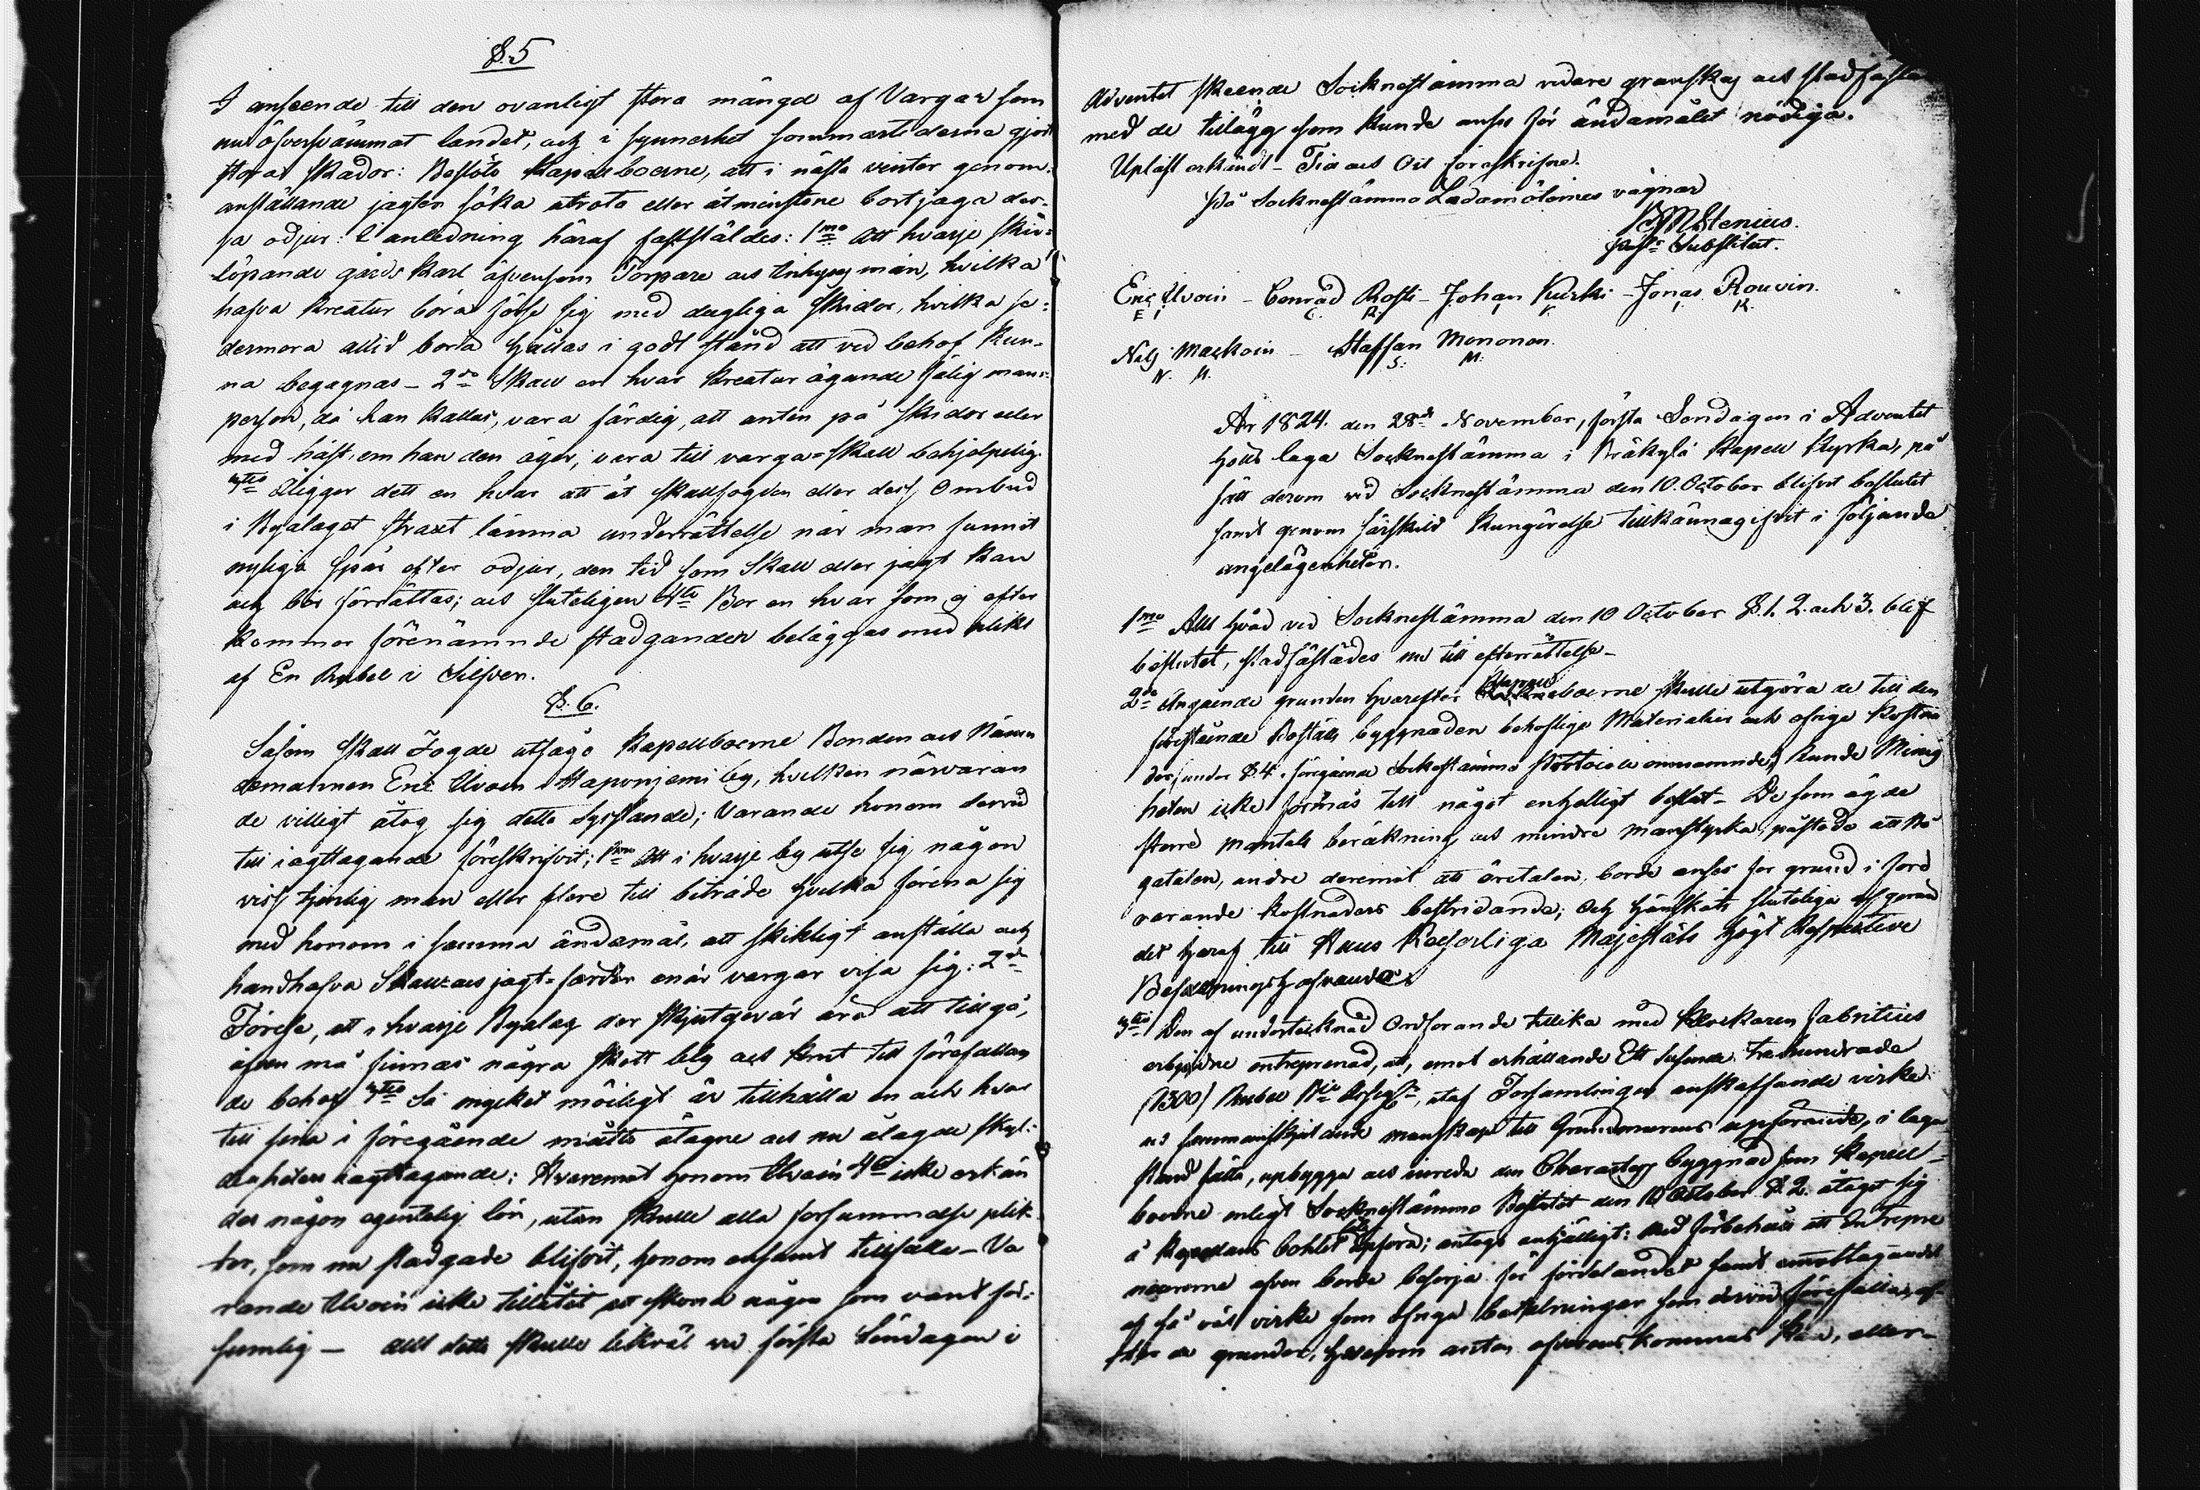 §.5
I anseende till den ovanligt stora mängd af Vargar som
nu öfversvämmat landet, och i synnerhet sommartiderna gjort
stora skador: Beslöto Kapellboerne, att i nästa vinter genom
anställande jagter söka utrota eller åtminstone bortjaga des-
sa odjur: I anledning häraf fastställdes: 1mo Att hvarje skrif-
löpande gårds Karl äfvensom Torpare och Inhyses män, hvilka
hafva Kreatur böra förse sig med dugliga skidor, hvilka se-
dermera alltid borde hållas i godt stånd att ved behof kun-
na begagnas – 2do Skall en hvar Kreatur ägande förlig mans-
person, då han kallas, vara färdig, att anten på skidor eller
med häst, om han den äger, vara till varga-skall behjelpelig.
3tio Åligger dett en hvar att åt skallfogden eller dess Ombud
i Byalaget straxt lämna underrättelse när man funnit
nyliga spår efter odjur, den tid som Skall eller jagt kan
och bör förrättas; och sluteligen 4to Bör en hvar som ej efter
kommer förenämnde stadganden beläggas med plikt
af En Rubel i Silfver.
§. 6.
Såsom Skall Fogde utsågo Kapellboerne Bonden och Nämn
demannen Eric Ilvoin i Haponjemi by, hvilken närvaran
de villigt åtog sig detta Sysslande; Varande honom dervid
till iagttagande föreskrifvit; 1mo Att i hvarje by utse sig någon
viss tjenlig man eller flere till biträde hvilka förena sig
med honom i samma ändamål, att skikligt anställa och
handhafva Skall och jagt-färder enär vargar visa sig: 2do
Förese, att i hvarje Byalag der skjutgevär äro att tillgå,
äfven må finnas några skott bly och Krut till förefallan
de behof 3tio Så mycket möiligt är tillhålla en och hvar
till sina i föregående måtto åtagne och nu ålagde skyl-
digheters iagttagande: Hvaremot honom Ilvoin 4to icke erkän
des någon egentelig lön, utan skulle alla försummelse plik-
ter, som nu stadgade blifvit, honom ensamt tillfalla – Va
rande Ilvoin icke tillåtit att skona någon som varit för-
sumlig – Allt detta skulle likväl vid första Söndagen i
Adventet skeende Socknestämma vidare granskas och stadfästas
med de tillägg som kunde anses för ändamålet nödiga.
Upläst erkändt – Tid och Ort föreskrifne.
På Socknestämmo Ledamöternes vägnar
Stenius.
Substitut.
Eric Ilvoin – Conrad Rosti – Johan Kurki – Jonas Rouvin.
E I C. R. I K. I. R.
Nils Maskoin – Staffan Mononen.
N. M. S: M:
År 1824. den 28de November, första Söndagen i Adventet
hölls laga Socknestämma i Bräkylä Kapell Kyrka, på
sätt derom vid Socknestämma den 10. October blifvit beslutet
samt genom särskild Kungörelse tillkännagifvit i följande
angelägenheter.
1mo Allt hvad vid Socknestämma den 10 October §.1. 2. och 3. blef
beslutet, stadfästades nu till efterrättelse –
2do Angående grunden hvarefter Kapell boerne skulle utgöra de till den
förestående Boställs byggnaden behöflige Materialier och öfrige Kostna
der, under §.4. föregående Sockestämmo Protocoll omnämnde, kunde Menig
heten icke förmås till något enhelligt beslut – De som ägde
större mantals beräkning och mindre manstyrka, påstodo att Rö
getalen, andre deremot att öretalen, borde anses för grund i förd
varande kostnaders bestridande; och hänsköts sluteliga afgöran
det häraf till Hans Kejserliga Majestäts Högt Respective
Befallningshafvande.
3tio Den af undertecknad Ordförande tillika med Klockaren Fabritius
erbjudne entreprenad, at, emot erhållande Ett tusende Trehundrade
/1300/ Rubel Bco Assigr, utaf Församlingen anskaffande virke
och manskap till Grundmurens upförande, i laga
stånd sätta, upbygga och inreda den byggnad som Kapell-
boerne enligt Socknestämmo Beslutet den 10 October §.2. åtagit sig
å Kapellans bohlet upföra; antogs enhälligt: Med förbehåll att Entrepre
neurerne äfven borde besörja för fördelandet samt emottagandet
af så väl virke som öfriga betalningar som dervid förefalla, ef-
ter de grunder, hvarom anten öfverenskommas kan, eller –